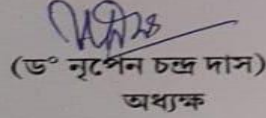 (ড° নৃপেন চন্দ্ৰ দাস)
অধ্যক্ষ